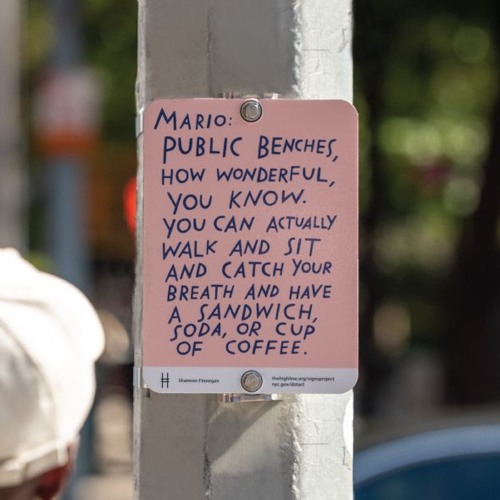 MARIO:
PUBLIC BENCHES,
HOW WONDERFUL,
YOU KNOW.
YOU CAN ACTUALLY
WALK AND SIT
AND CATCH YOUR
BREATH AND HAVE
A SANDWICH,
SODA, OR CUP
OF COFFEE.
Shannon Finnegan
thehighline.org/signsproject
nyc.gov/dotart